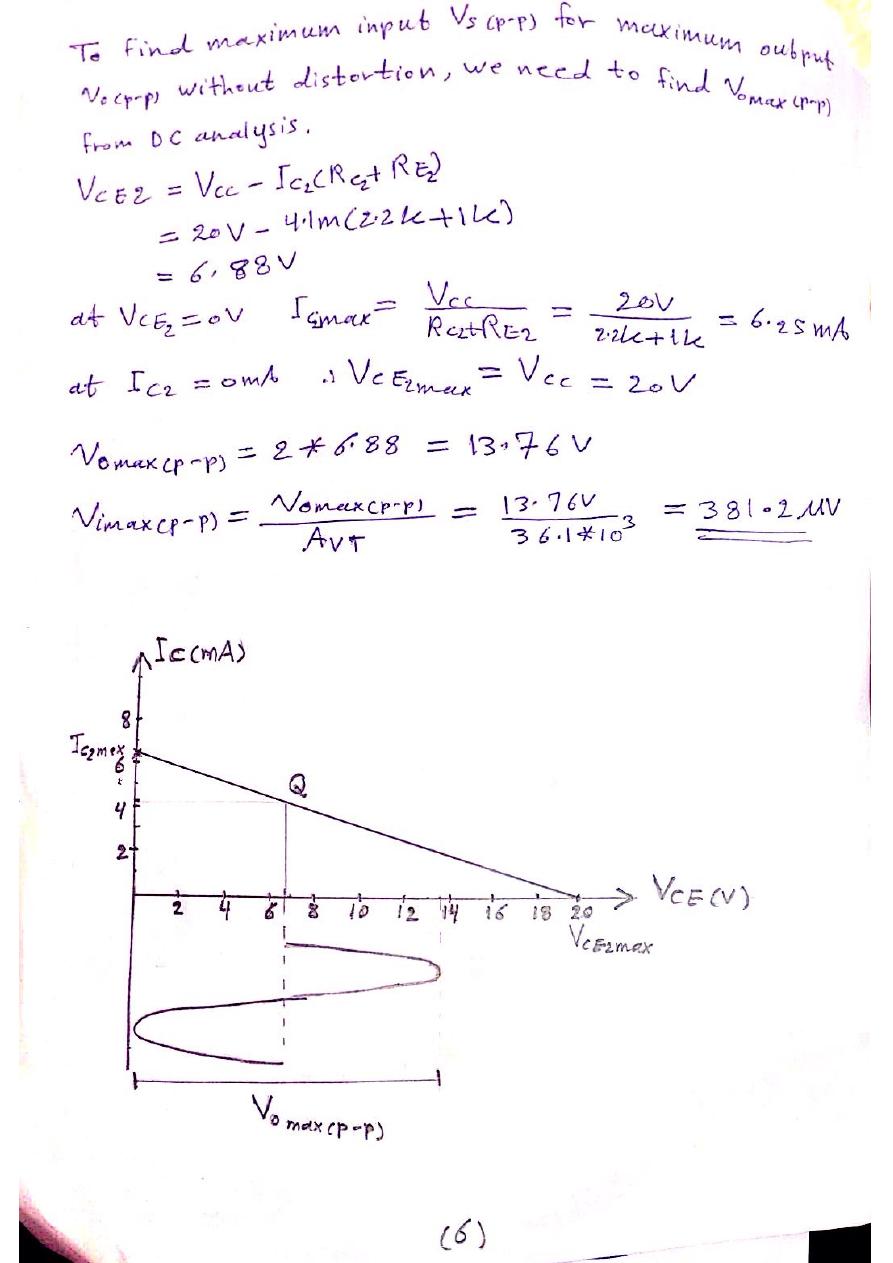 To find maximum input Vs (p-p) for maximum output
Vo(p-p) without distortion, we need to find Vomax (p-p)
from DC analysis.
VCE2 = Vcc - Ic2(Rc2 + RE2)
= 20V - 4.1m(2.2k+1k)
= 6.88V
at VCE2 = 0V Ic2max = Vcc / (Rc2+RE2) = 20V / (2.2k+1k) = 6.25 mA
at Ic2 = 0mA ∴ VCE2max = Vcc = 20V
Vomax(p-p) = 2 * 6.88 = 13.76 V
Vimax(p-p) = Vomax(p-p) / AVT = 13.76V / 36.1*10³ = 381.2 µV
Ic(mA)
8
Ic2max
6
Q
4
2
VCE(V)
2 4 6 8 10 12 14 16 18 20
VCE2max
Vo max(p-p)
(6)